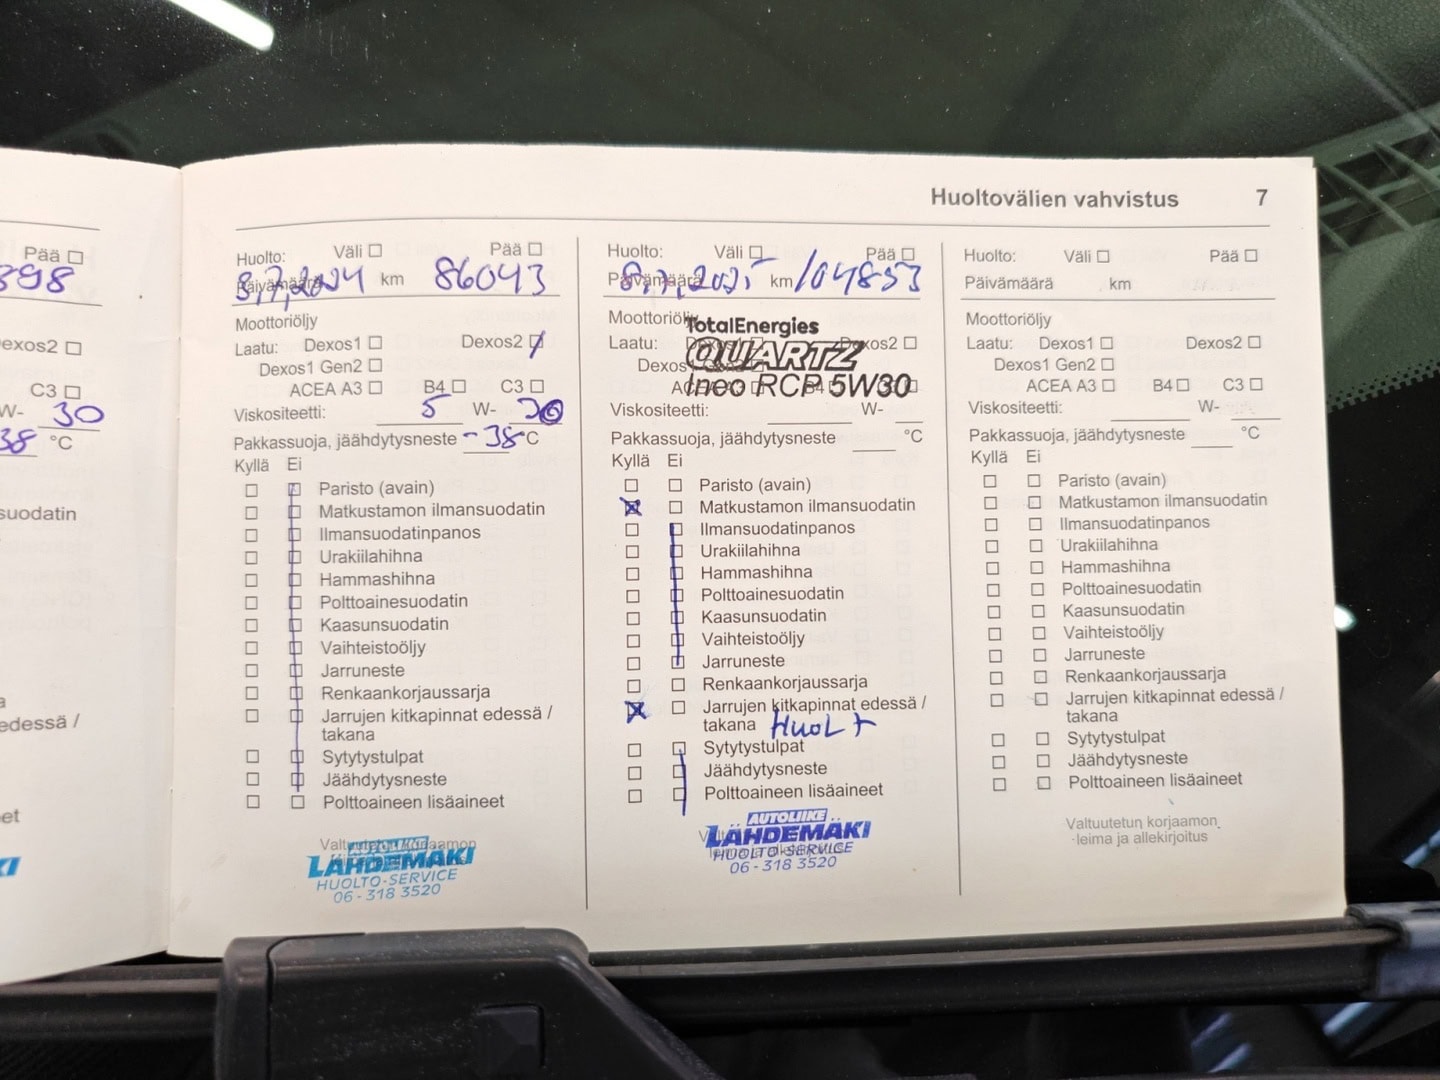 Huoltovälien vahvistus 7
Pää
398
exos2
C3
W- 30
38 °C
suodatin
a
edessä /
et
KI
Huolto: Väli Pää
Päivämäärä 3.7.2024 km 86043
Moottoriöljy
Laatu: Dexos1 Dexos2
Dexos1 Gen2
ACEA A3 B4 C3
Viskositeetti: 5 W- 30
Pakkassuoja, jäähdytysneste -38 °C
Kyllä Ei
Paristo (avain)
Matkustamon ilmansuodatin
Ilmansuodatinpanos
Urakiilahihna
Hammashihna
Polttoainesuodatin
Kaasunsuodatin
Vaihteistoöljy
Jarruneste
Renkaankorjaussarja
Jarrujen kitkapinnat edessä /
takana
Sytytystulpat
Jäähdytysneste
Polttoaineen lisäaineet
Valtuutetun korjaamon
AUTOLIIKE
LÄHDEMÄKI
HUOLTO-SERVICE
06-318 3520
Huolto: Väli Pää
Päivämäärä 8.7.2025 km 104853
Moottoriöljy
TotalEnergies
Laatu: Dexos1 Dexos2
QUARTZ
Dexos1 Gen2
ACEA A3 B4
Ineo RCP 5W30
Viskositeetti: W-
Pakkassuoja, jäähdytysneste °C
Kyllä Ei
Paristo (avain)
Matkustamon ilmansuodatin
Ilmansuodatinpanos
Urakiilahihna
Hammashihna
Polttoainesuodatin
Kaasunsuodatin
Vaihteistoöljy
Jarruneste
Renkaankorjaussarja
Jarrujen kitkapinnat edessä /
takana HUOLT
Sytytystulpat
Jäähdytysneste
Polttoaineen lisäaineet
AUTOLIIKE
LÄHDEMÄKI
HUOLTO-SERVICE
06-318 3520
Huolto: Väli Pää
Päivämäärä km
Moottoriöljy
Laatu: Dexos1 Dexos2
Dexos1 Gen2
ACEA A3 B4 C3
Viskositeetti: W-
Pakkassuoja, jäähdytysneste °C
Kyllä Ei
Paristo (avain)
Matkustamon ilmansuodatin
Ilmansuodatinpanos
Urakiilahihna
Hammashihna
Polttoainesuodatin
Kaasunsuodatin
Vaihteistoöljy
Jarruneste
Renkaankorjaussarja
Jarrujen kitkapinnat edessä /
takana
Sytytystulpat
Jäähdytysneste
Polttoaineen lisäaineet
Valtuutetun korjaamon
leima ja allekirjoitus